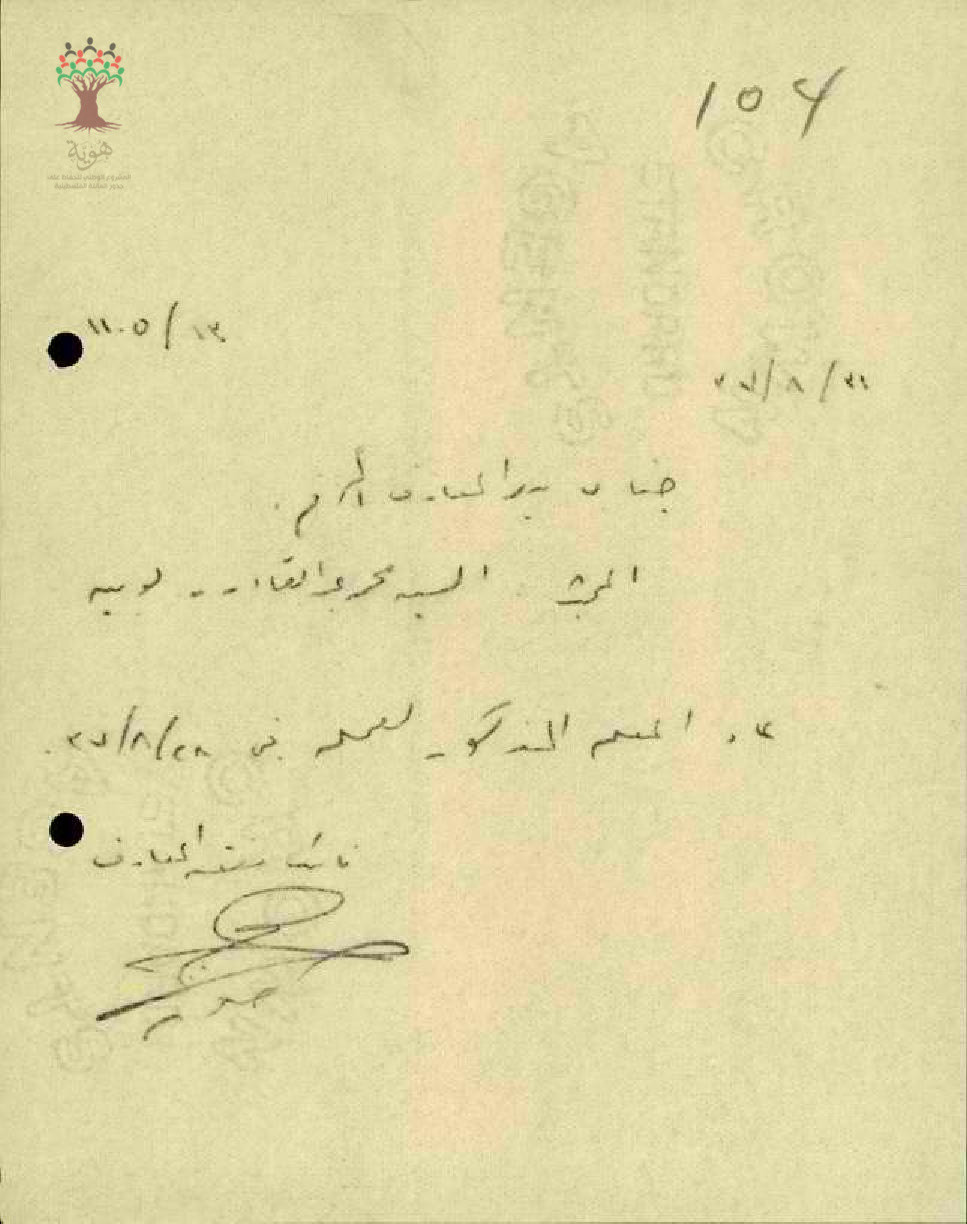 هوية
المشروع الوطني للحفاظ على
جذور العائلة الفلسطينية
104
١١٠٥/١٣
٣١/٨/٣٦
جناب مدير المعارف الأكرم
المبحث السيد محمد عبد القادر لوبيه
عاد المعلم المذكور لعمله في ٢٨/٨/٣٦
نائب مفتش المعارف